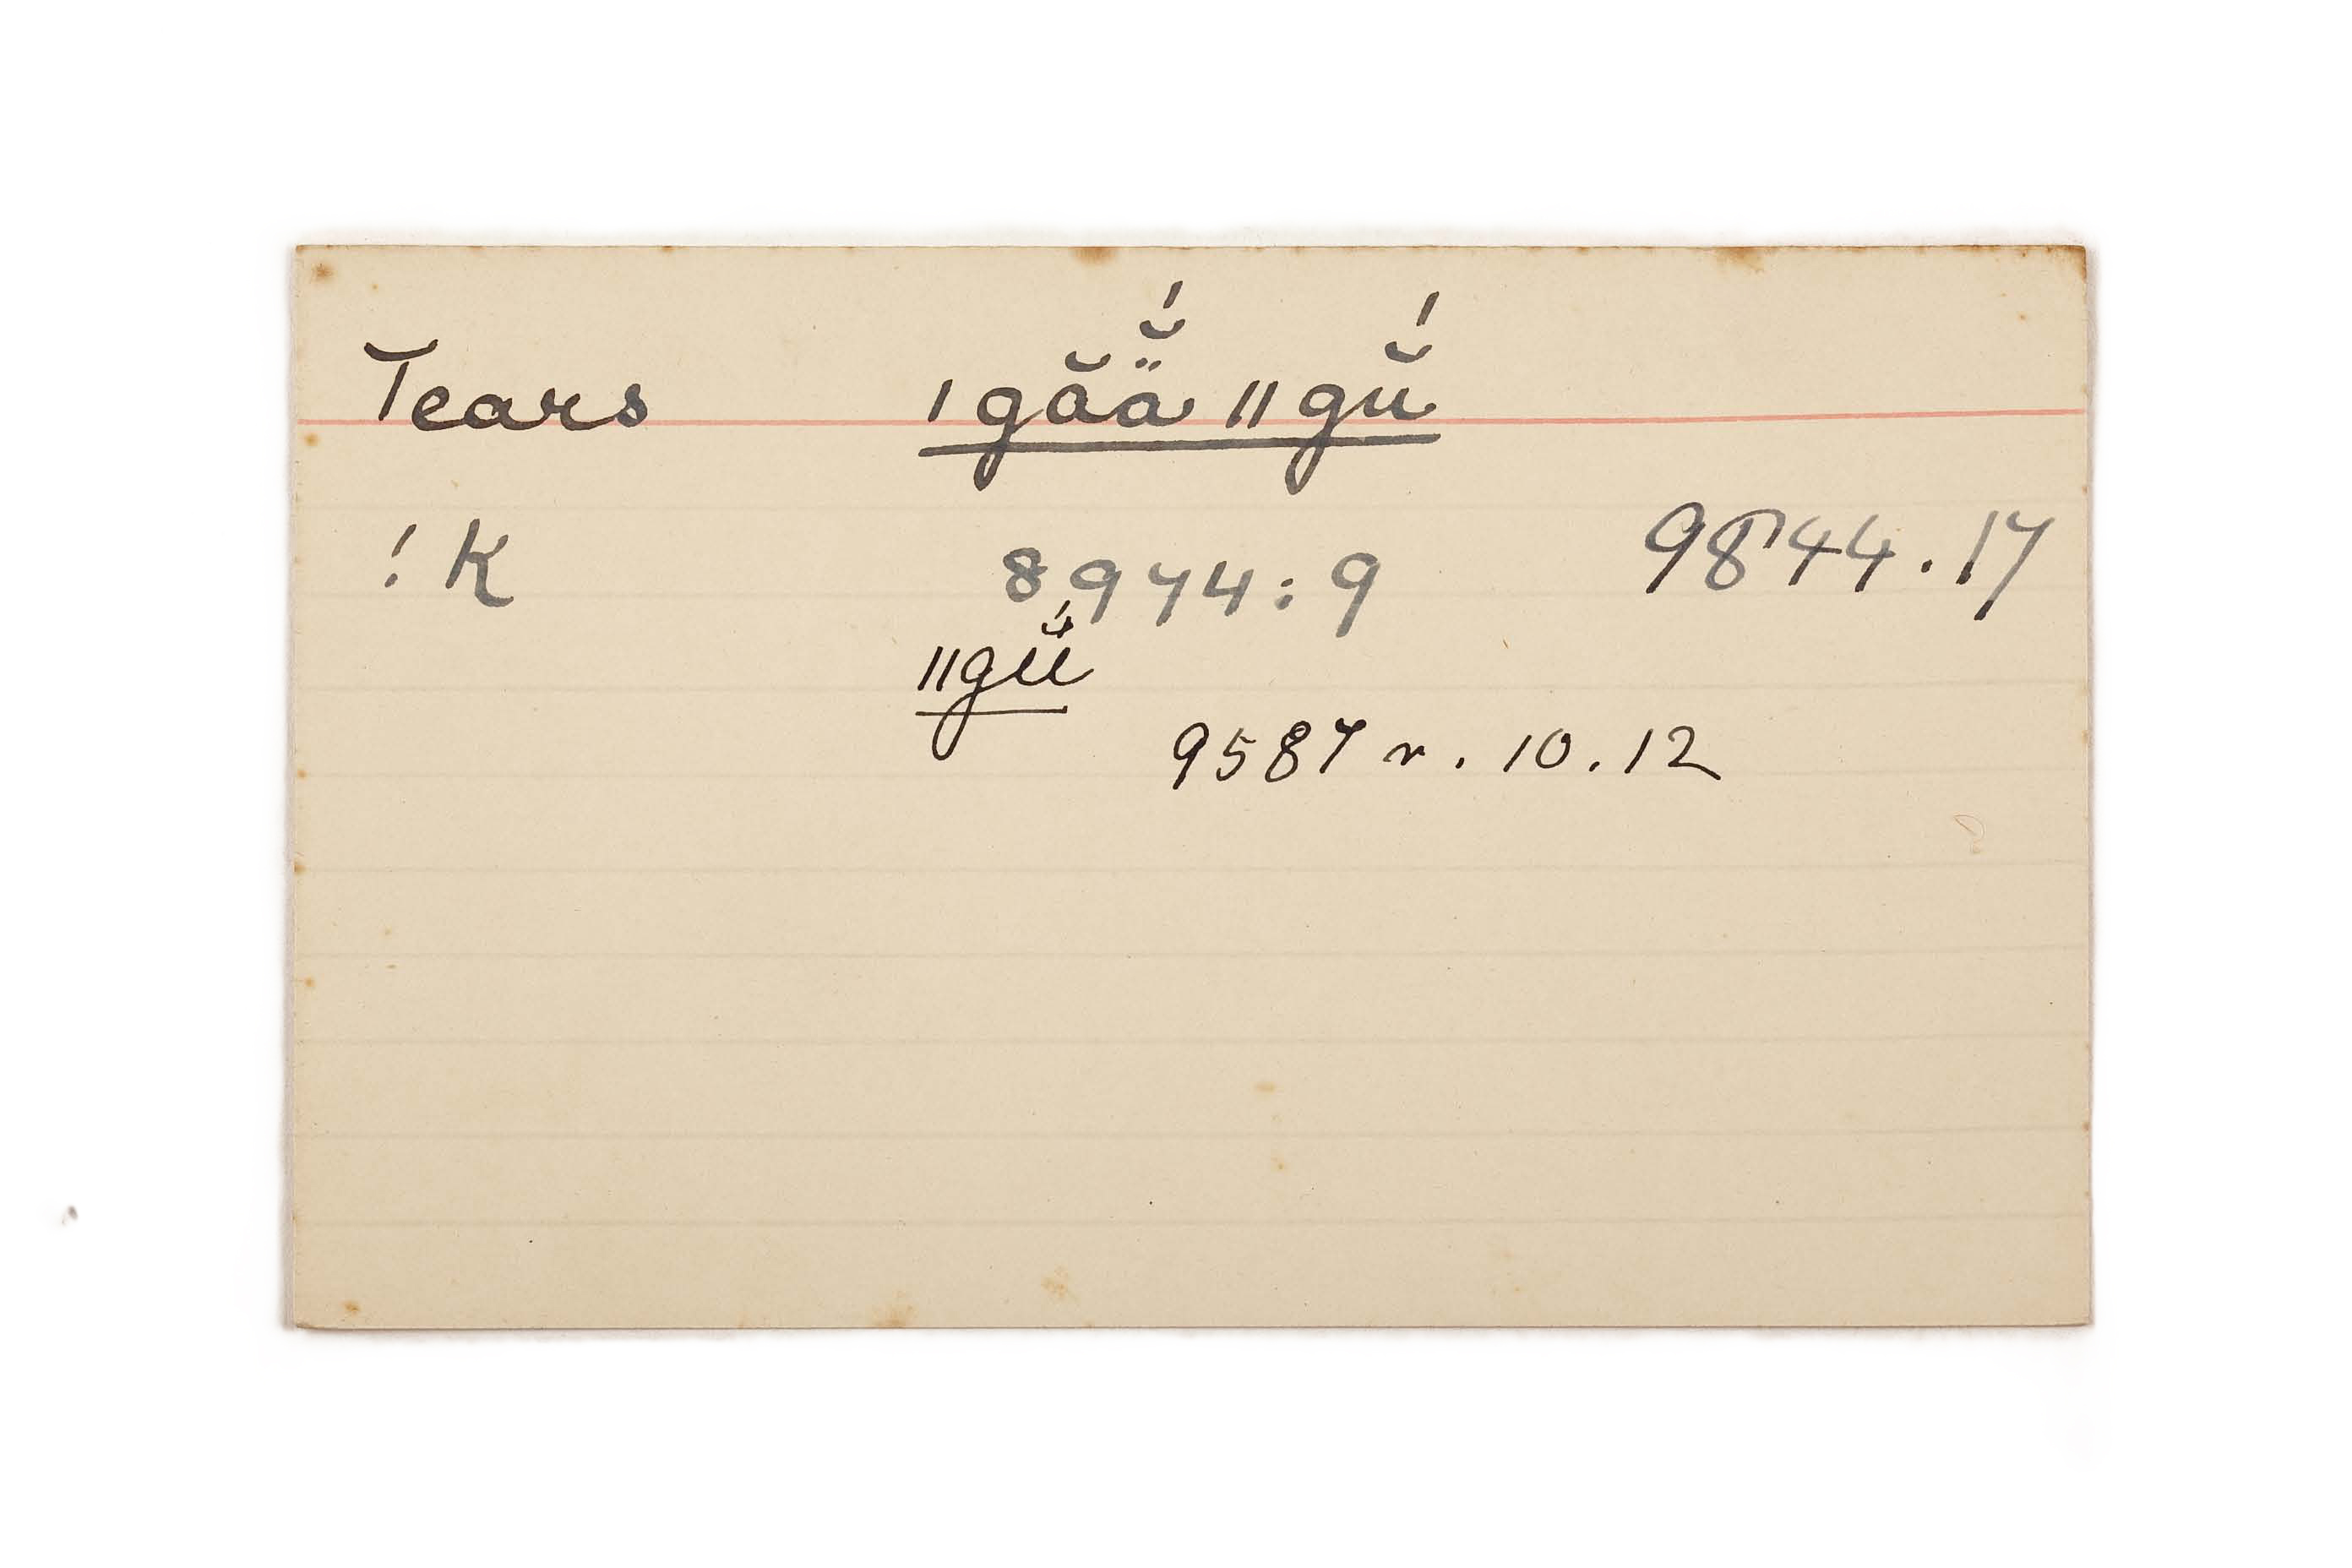 Tears ǀgăä̆́ ǁgŭ́
!K 8974:9 9844.17
ǁgŭ́
9587 r. 10.12